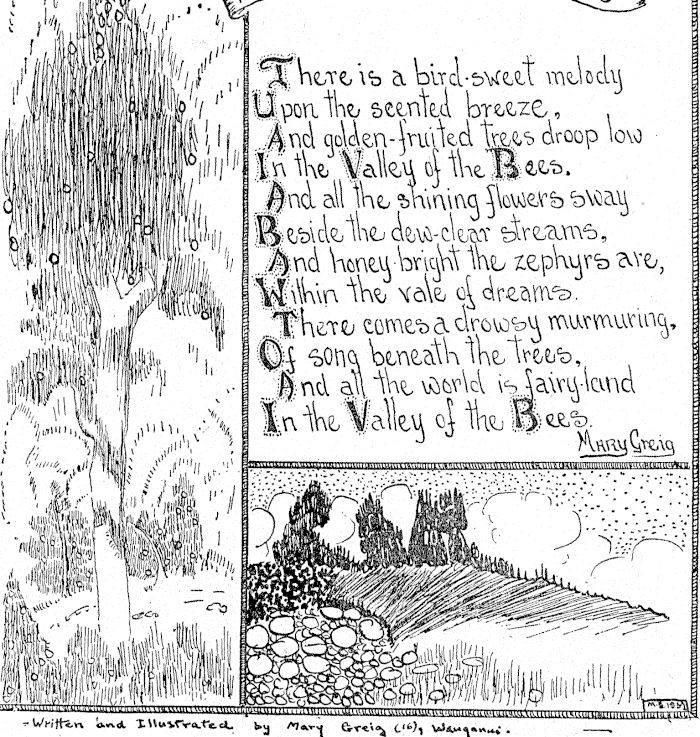 There is a bird-sweet melody
Upon the scented breeze,
And golden-fruited trees droop low
In the Valley of the Bees.
And all the shining flowers sway
Beside the dew-clear streams,
And honey-bright the zephyrs are,
Within the vale of dreams.
There comes a drowsy murmuring,
Of song beneath the trees,
And all the world is fairy-land
In the Valley of the Bees.
Mary Greig
-Written and Illustrated by Mary Greig (16), Wanganui.